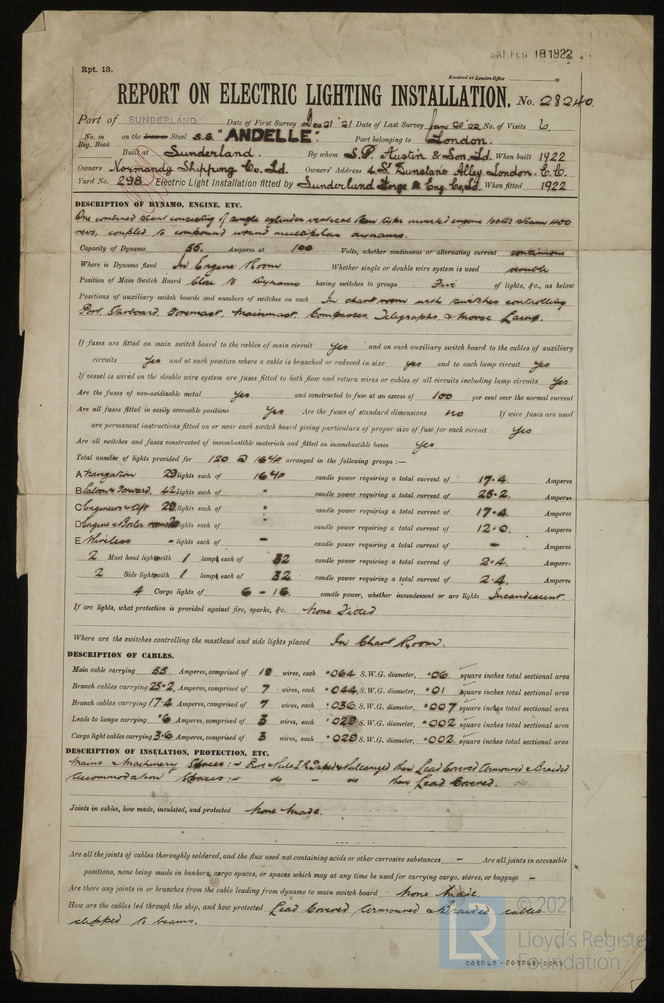 SAT. FEB 18 1922
Rpt. 13.
Received at London Office
REPORT ON ELECTRIC LIGHTING INSTALLATION. No. 28240.
Port of SUNDERLAND Date of First Survey Dec 21 '21 Date of Last Survey Jan 20 '22 No. of Visits 6
No. in Reg. Book on the Iron or Steel S.S. "ANDELLE". Port belonging to London.
Built at Sunderland. By whom S.P. Austin & Son, Ld. When built 1922
Owners Normandy Shipping Co. Ld. Owners' Address 4 St Dunstans Alley London. E.C.
Yard No. 298 Electric Light Installation fitted by Sunderland Forge & Eng. Co, Ld. When fitted 1922
DESCRIPTION OF DYNAMO, ENGINE, ETC.
One combined plant consisting of single cylinder vertical steam type inverted engine 100 lbs steam 400
revs, coupled to compound wound multipolar dynamo.
Capacity of Dynamo 55. Amperes at 100 Volts, whether continuous or alternating current continuous
Where is Dynamo fixed In Engine Room Whether single or double wire system is used double
Position of Main Switch Board Close to Dynamo having switches to groups Five of lights, &c., as below
Positions of auxiliary switch boards and numbers of switches on each In chart room with switches controlling
Port, Starboard, Foremast, Mainmast, Compasses, Telegraphs, & Morse Lamp.
If fuses are fitted on main switch board to the cables of main circuit Yes and on each auxiliary switch board to the cables of auxiliary
circuits Yes and at each position where a cable is branched or reduced in size yes and to each lamp circuit yes
If vessel is wired on the double wire system are fuses fitted to both flow and return wires or cables of all circuits including lamp circuits Yes
Are the fuses of non-oxidizable metal Yes and constructed to fuse at an excess of 100 per cent over the normal current
Are all fuses fitted in easily accessible positions Yes Are the fuses of standard dimensions No If wire fuses are used
are permanent instructions fitted on or near each switch board giving particulars of proper size of fuse for each circuit Yes
Are all switches and fuses constructed of incombustible materials and fitted on incombustible bases Yes
Total number of lights provided for 120 @ 16 cp arranged in the following groups :—
A Navigation 29 lights each of 16 cp candle power requiring a total current of 17.4. Amperes
B Saloon & Forward. 42 lights each of " candle power requiring a total current of 25.2. Amperes
C Engineers & Aft 29 lights each of " candle power requiring a total current of 17.4 Amperes
D Engine & Boiler rooms 20 lights each of " candle power requiring a total current of 12.0. Amperes
E Wireless - lights each of - candle power requiring a total current of - Amperes
2 Mast head lights with 1 lamps each of 32 candle power requiring a total current of 2.4. Amperes
2 Side lights with 1 lamps each of 32 candle power requiring a total current of 2.4. Amperes
4 Cargo lights of 6 - 16. candle power, whether incandescent or arc lights Incandescent.
If arc lights, what protection is provided against fire, sparks, &c. None Fitted
Where are the switches controlling the masthead and side lights placed In Chart Room.
DESCRIPTION OF CABLES.
Main cable carrying 55 Amperes, comprised of 19 wires, each .064 S.W.G. diameter, .06 square inches total sectional area
Branch cables carrying 25.2 Amperes, comprised of 7 wires, each .044 S.W.G. diameter, .01 square inches total sectional area
Branch cables carrying 17.4 Amperes, comprised of 7 wires, each .036 S.W.G. diameter, .007 square inches total sectional area
Leads to lamps carrying .6 Amperes, comprised of 3 wires, each .029 S.W.G. diameter, .002 square inches total sectional area
Cargo light cables carrying 3.6 Amperes, comprised of 3 wires, each .029 S.W.G. diameter, .002 square inches total sectional area
DESCRIPTION OF INSULATION, PROTECTION, ETC.
Mains & Machinery Spaces :- Pure & Vulc I.R. Taped & Vulcanized then Lead Covered Armoured & Braided
Accommodation Spaces :- do - do then Lead Covered. do.
Joints in cables, how made, insulated, and protected None Made.
Are all the joints of cables thoroughly soldered, and the flux used not containing acids or other corrosive substances - Are all joints in accessible
positions, none being made in bunkers, cargo spaces, or spaces which may at any time be used for carrying cargo, stores, or baggage -
Are there any joints in or branches from the cable leading from dynamo to main switch board None Made.
How are the cables led through the ship, and how protected Lead Covered Armoured & Braided cables
clipped to beams.
© 2021
LR Lloyd's Register
Foundation